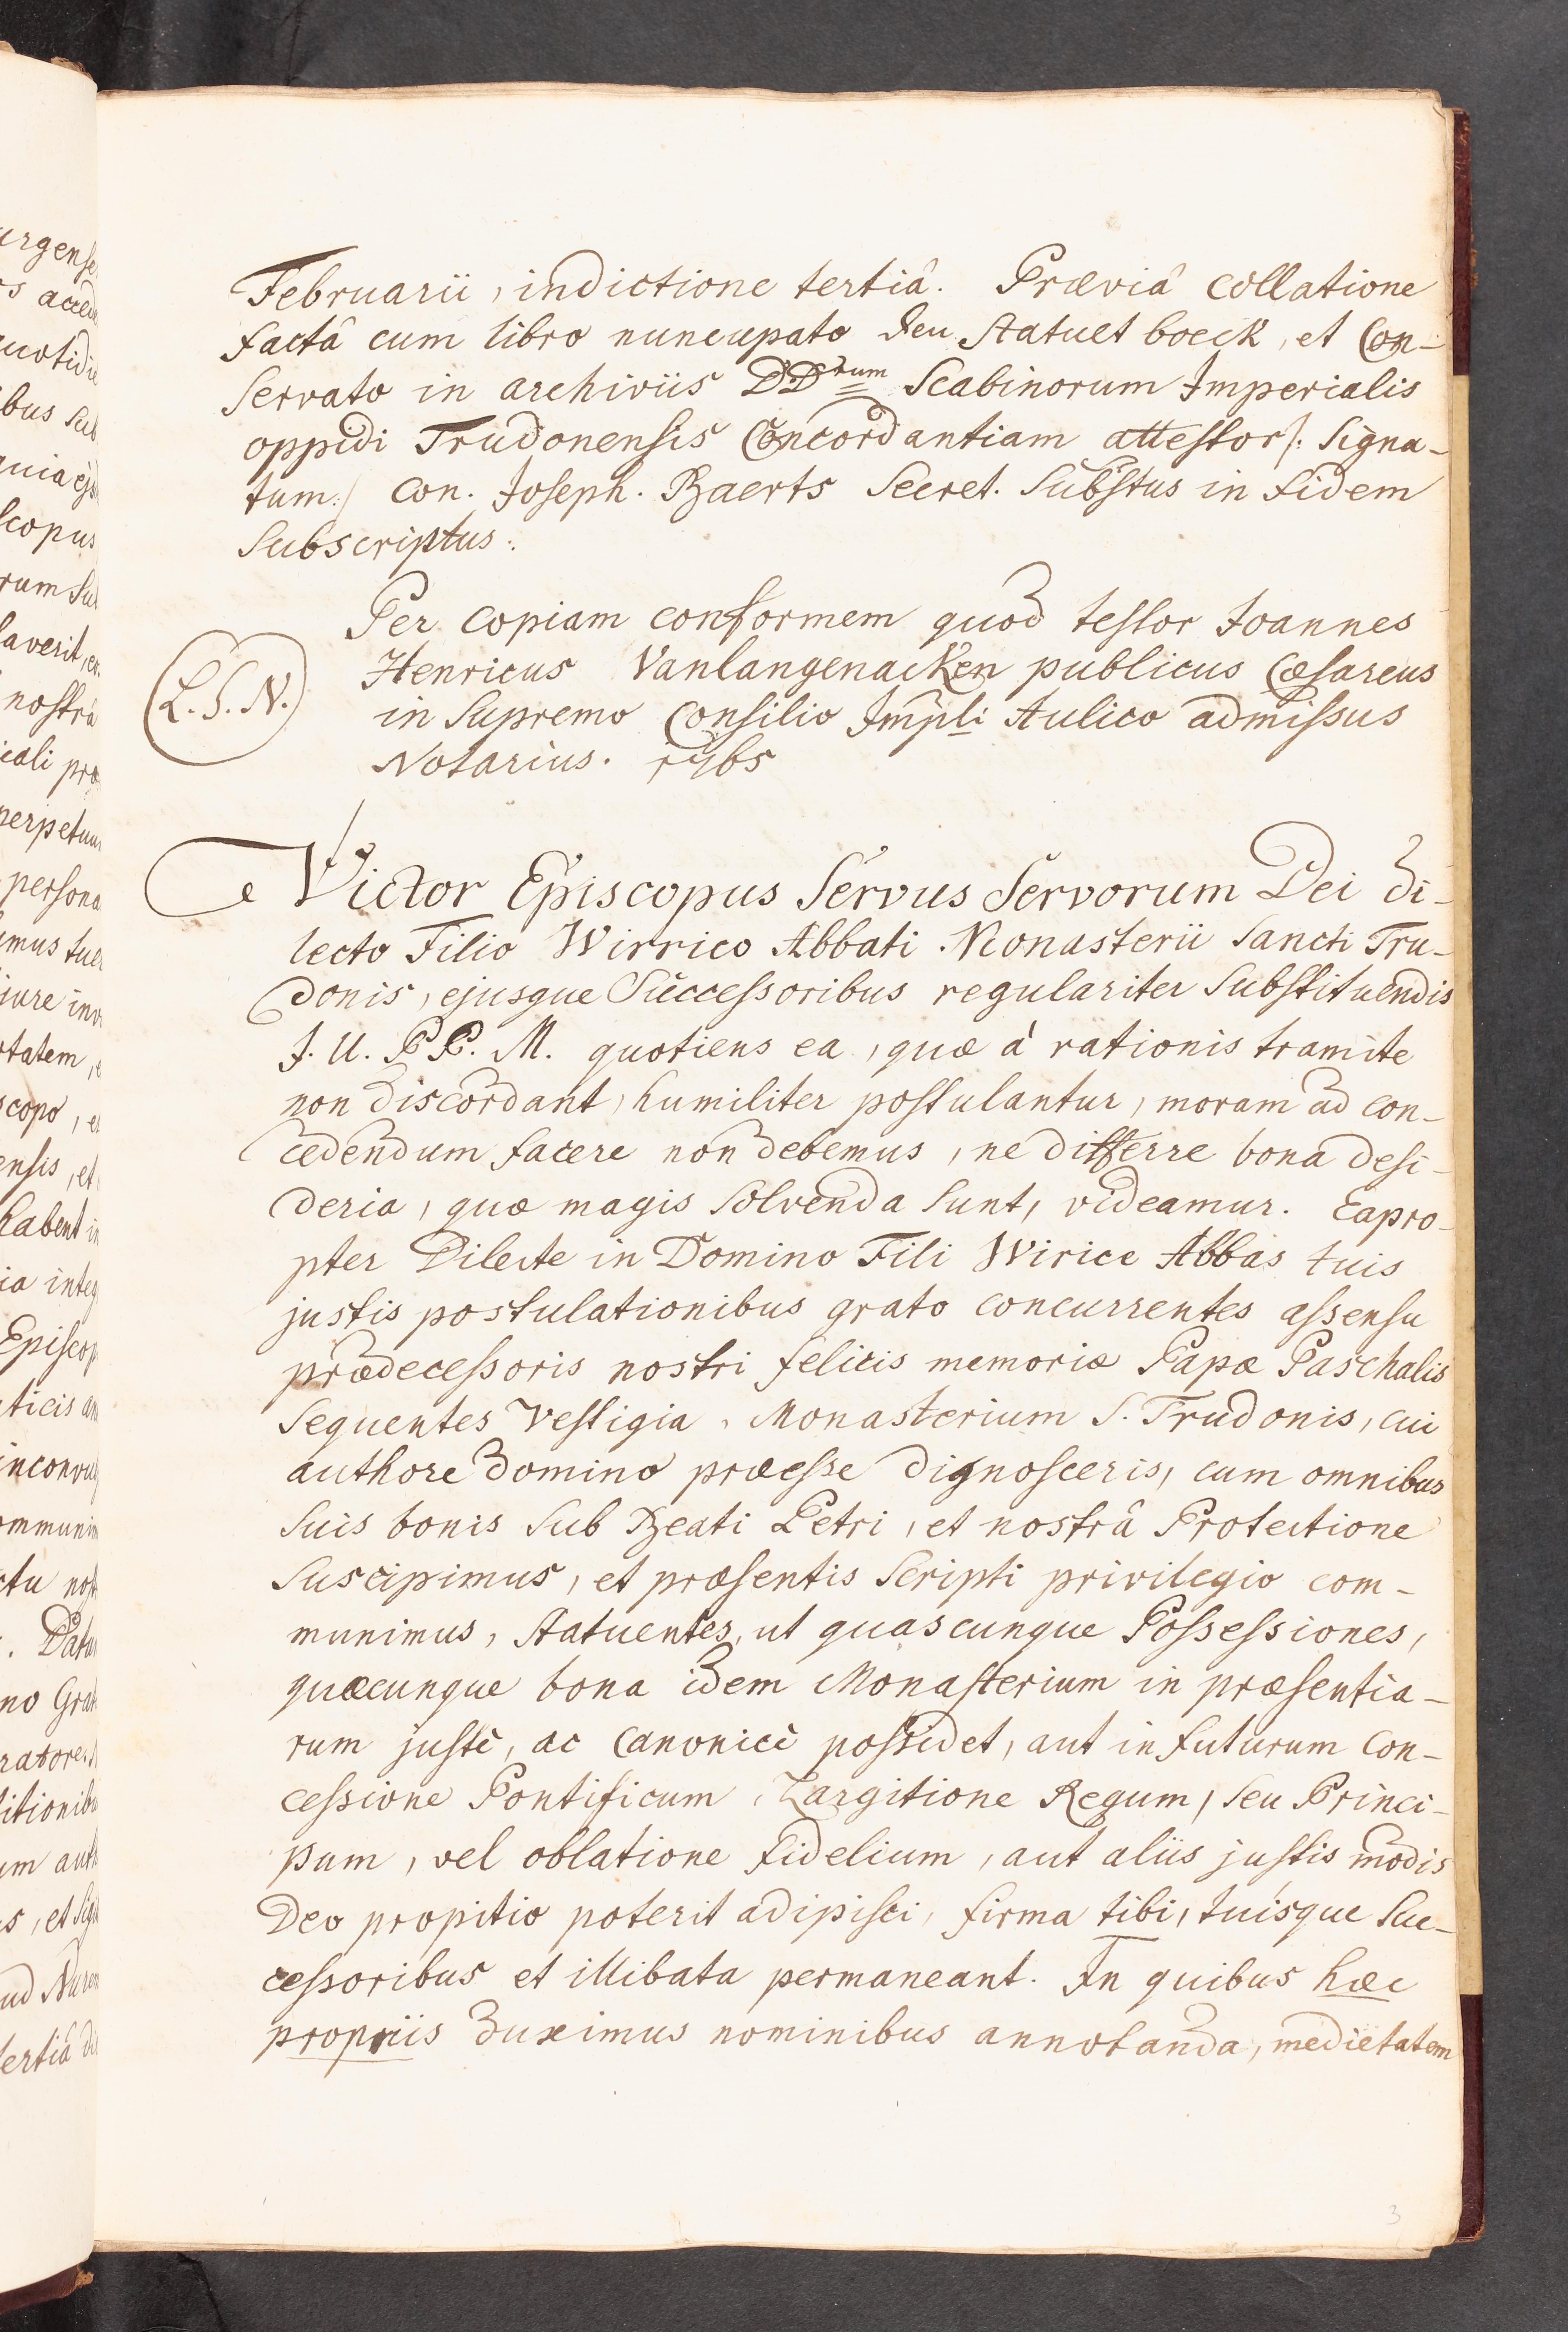 Februarii, indictione tertiâ. Præviâ collatione
factâ cum libro nuncupato den Statuet boeck, et Con-
servato in archiviis DD.rum Scabinorum Imperialis
oppidi Trudonensis Concordantiam attestor /: signa-
tum :/ Con. Joseph. Baerts Secret. Substus in fidem
subscriptus.
Per copiam conformem quod testor Joannes
Henricus Vanlangenacken publicus Cæsareus
in Supremo Consilio Impli Aulico admissus
Notarius.
L. S. N.
Victor Episcopus Servus Servorum Dei di-
lecto Filio Wirrico Abbati Monasterii Sancti Tru-
donis, ejusque Successoribus regulariter substituendis
J. U. P P. M. quotiens ea, quæ à rationis tramite
non discordant, humiliter postulantur, moram ad con-
cedendum facere non debemus, ne differre bona desi-
deria, quæ magis solvenda sunt, videamur. Eapro-
pter Dilecte in Domino Fili Wirice Abbas tuis
justis postulationibus grato concurrentes assensu
prædecessoris nostri felicis memoriæ Papæ Paschalis
sequentes vestigia, Monasterium S. Trudonis, cui
authore Domino præesse dignosceris, cum omnibus
suis bonis sub Beati Petri, et nostrâ Protectione
suscipimus, et præsentis scripti privilegio com-
munimus, statuentes, ut quascunque Possessiones,
quæcunque bona idem Monasterium in præsentia-
rum justè, ac Canonicè possidet, aut in futurum Con-
cessione Pontificum, Largitione Regum, seu Princi-
pum, vel oblatione fidelium, aut aliis justis modis
Deo propitio poterit adipisci, firma tibi, tuisque Suc-
cessoribus et illibata permaneant. In quibus hæc
propriis duximus nominibus annotanda, medietatem